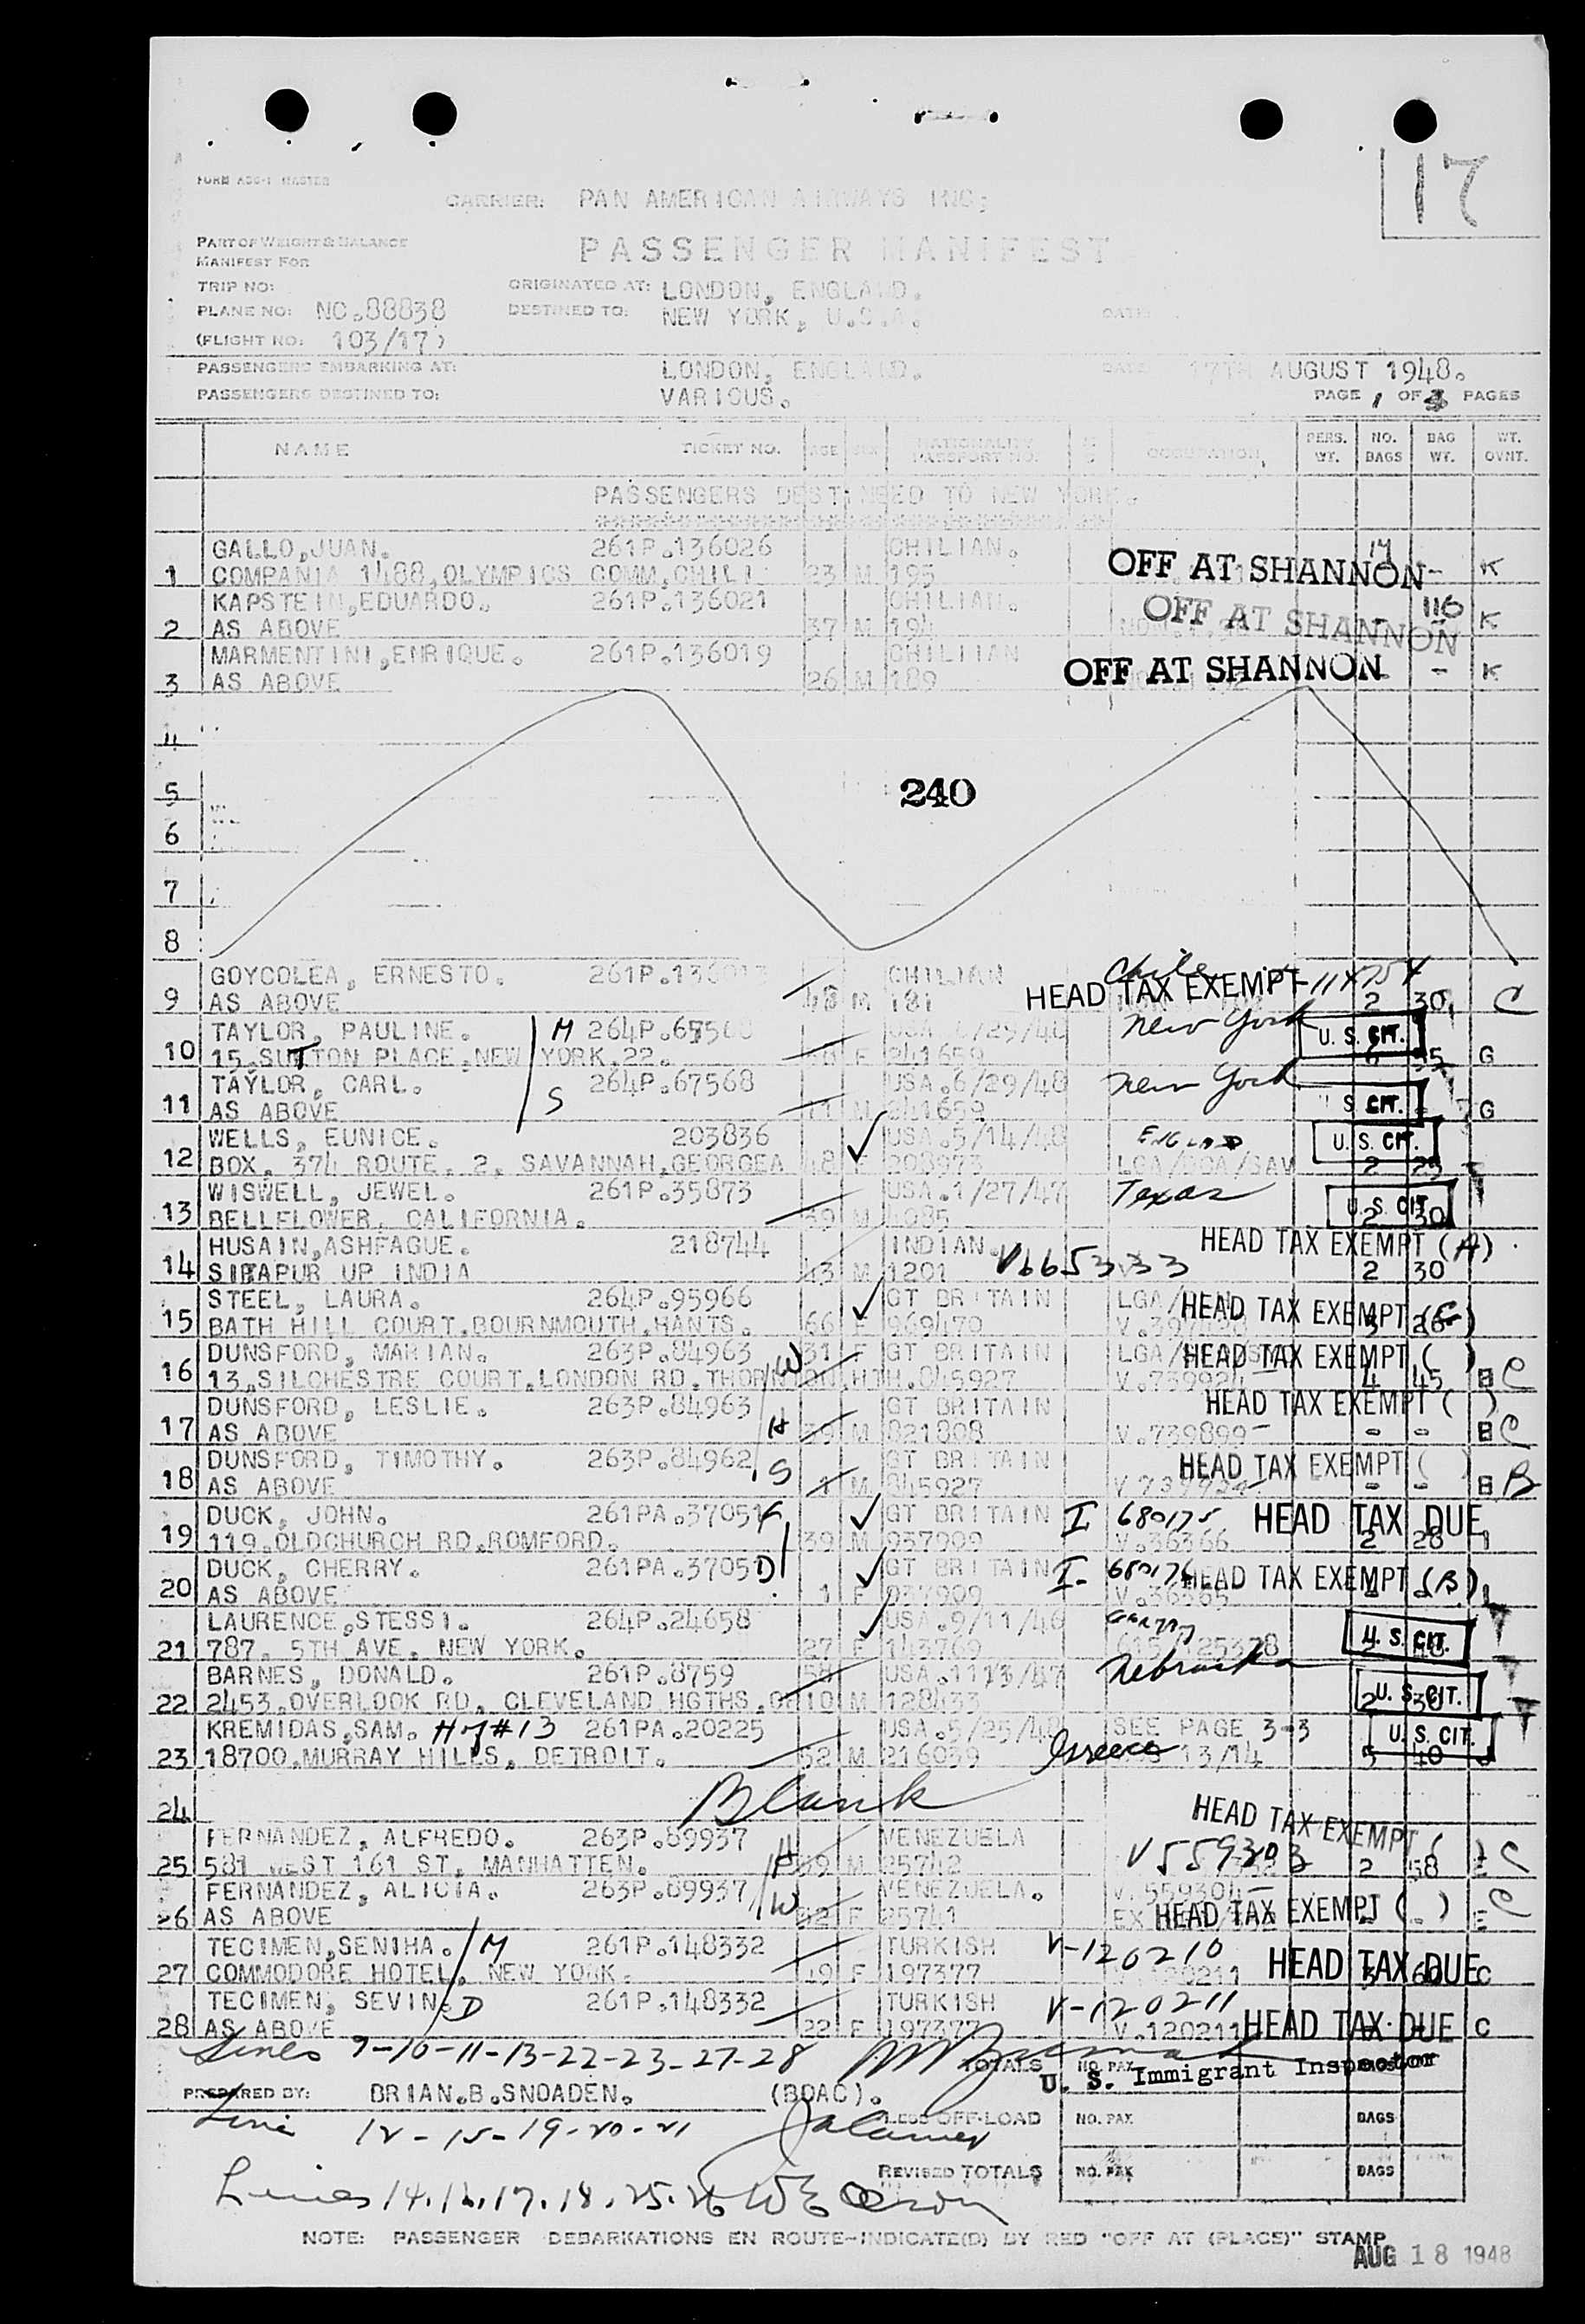 17
FORM ADG-1 MASTER
CARRIER: PAN AMERICAN AIRWAYS INC;
PART OF WEIGHT & BALANCE
MANIFEST FOR
PASSENGER MANIFEST
TRIP NO: ORIGINATED AT: LONDON, ENGLAND.
PLANE NO: NC.88838 DESTINED TO: NEW YORK, U.S.A. DATE:
(FLIGHT NO: 103/17)
PASSENGERS EMBARKING AT: LONDON, ENGLAND. DATE: 17TH AUGUST 1948.
PASSENGERS DESTINED TO: VARIOUS. PAGE 1 OF 3 PAGES
NAME TICKET NO. AGE SEX NATIONALITY PASSPORT NO. OCCUPATION, PERS. WT. NO. BAGS BAG WT. WT. OVNT.
PASSENGERS DESTINED TO NEW YORK.
GALLO,JUAN. 261P.136026 CHILIAN. 14
1 COMPANIA 1488,OLYMPICS COMM,CHILI 23 M 195 OFF AT SHANNON - K
KAPSTEIN,EDUARDO. 261P.136021 CHILIAN. OFF AT SHANNON 116
2 AS ABOVE 37 M 194 - K
MARMENTINI,ENRIQUE. 261P.136019 CHILIIAN
3 AS ABOVE 26 M 189 OFF AT SHANNON - K
4
5 240
6
7
8
GOYCOLEA, ERNESTO. CHILIAN Chile
9 AS ABOVE 48 M 181 HEAD TAX EXEMPT 2 30 C
TAYLOR, PAULINE. M New York U. S. CIT.
10 15.SUTTON PLACE,NEW YORK.22. F 241659 G
TAYLOR, CARL. 264P.67568 USA.6/29/48 New York
11 AS ABOVE S 11 M 241659 U. S. CIT. G
WELLS, EUNICE. 203836 USA.5/14/48 U. S. CIT.
12 BOX. 374 ROUTE. 2, SAVANNAH,GEORGEA 48 F 208973 LGA/DCA/SAV 2 25
WISWELL, JEWEL. 261P.35873 USA.1/27/47 Texas
13 BELLFLOWER, CALIFORNIA. 39 M 4085 U. S. CIT. 2 30
HUSAIN,ASHFAGUE. 218744 INDIAN. HEAD TAX EXEMPT (A)
14 SITAPUR UP INDIA 43 M 1201 2 30
STEEL, LAURA. 264P.95966 GT BRITAIN HEAD TAX EXEMPT
15 BATH HILL COURT.BOURNMOUTH.HANTS. 66 F 969470 3 26
DUNSFORD, MARIAN. 263P.84963 W 31 F GT BRITAIN HEAD TAX EXEMPT ( )
16 13.SILCHESTRE COURT.LONDON RD.THORNTON,HTH.845927 V.739924 4 45 B C
DUNSFORD, LESLIE. 263P.84963 GT BRITAIN HEAD TAX EXEMPT ( )
17 AS ABOVE H 39 M 821808 V.739899 - - B C
DUNSFORD, TIMOTHY. 263P.84962 S GT BRITAIN HEAD TAX EXEMPT ( )
18 AS ABOVE 1 M 845927 - - B B
DUCK, JOHN. 261PA.37051 F GT BRITAIN I 680175 HEAD TAX DUE
19 119.OLDCHURCH RD.ROMFORD. 39 M 937909 V.36366 2 28
DUCK, CHERRY. 261PA.37051 D GT BRITAIN I- 680176 HEAD TAX EXEMPT (B)
20 AS ABOVE 1 F 937909 V.36365
LAURENCE,STESSI. 264P.24658 USA.9/11/46
21 787. 5TH AVE. NEW YORK. 27 F 143769 U. S. CIT.
BARNES, DONALD. 261P.8759 58 USA.1113/47 Nebraska
22 2453.OVERLOOK RD. CLEVELAND HGTHS.OHIO M 128433 2 30 U. S. CIT.
KREMIDAS,SAM. 261PA.20225 USA.5/25/48 SEE PAGE 3-3 U. S. CIT.
23 18700.MURRAY HILLS, DETROIT. 52 M 216039 Greece 13/14 5 40
24 Blank
FERNANDEZ, ALFREDO. 263P.89937 H VENEZUELA HEAD TAX EXEMPT ( )
25 581 WEST 161 ST, MANHATTEN. 39 M 25742 V559303 2 58 E C
FERNANDEZ, ALICIA. 263P.89937 W VENEZUELA. V.559304
26 AS ABOVE F 25741 HEAD TAX EXEMPT ( ) E C
TECIMEN,SENIHA. M 261P.148332 TURKISH V-120210
27 COMMODORE HOTEL, NEW YORK. 49 F 197377 HEAD TAX DUE C
TECIMEN, SEVIN. D 261P.148332 TURKISH V-120211
28 AS ABOVE 22 F 197377 V.120211 HEAD TAX DUE C
Lines 9-10-11-13-22-23-27-28 TOTALS NO. PAX
U. S. Immigrant Inspector
PREPARED BY: BRIAN.B.SNOADEN. (BOAC).
LESS OFF-LOAD NO. PAX BAGS
Line 12-15-19-20-21
REVISED TOTALS NO. PAX BAGS
Lines 14.16.17.18.25.26
NOTE: PASSENGER DEBARKATIONS EN ROUTE-INDICATE(D) BY RED "OFF AT (PLACE)" STAMP
AUG 18 1948